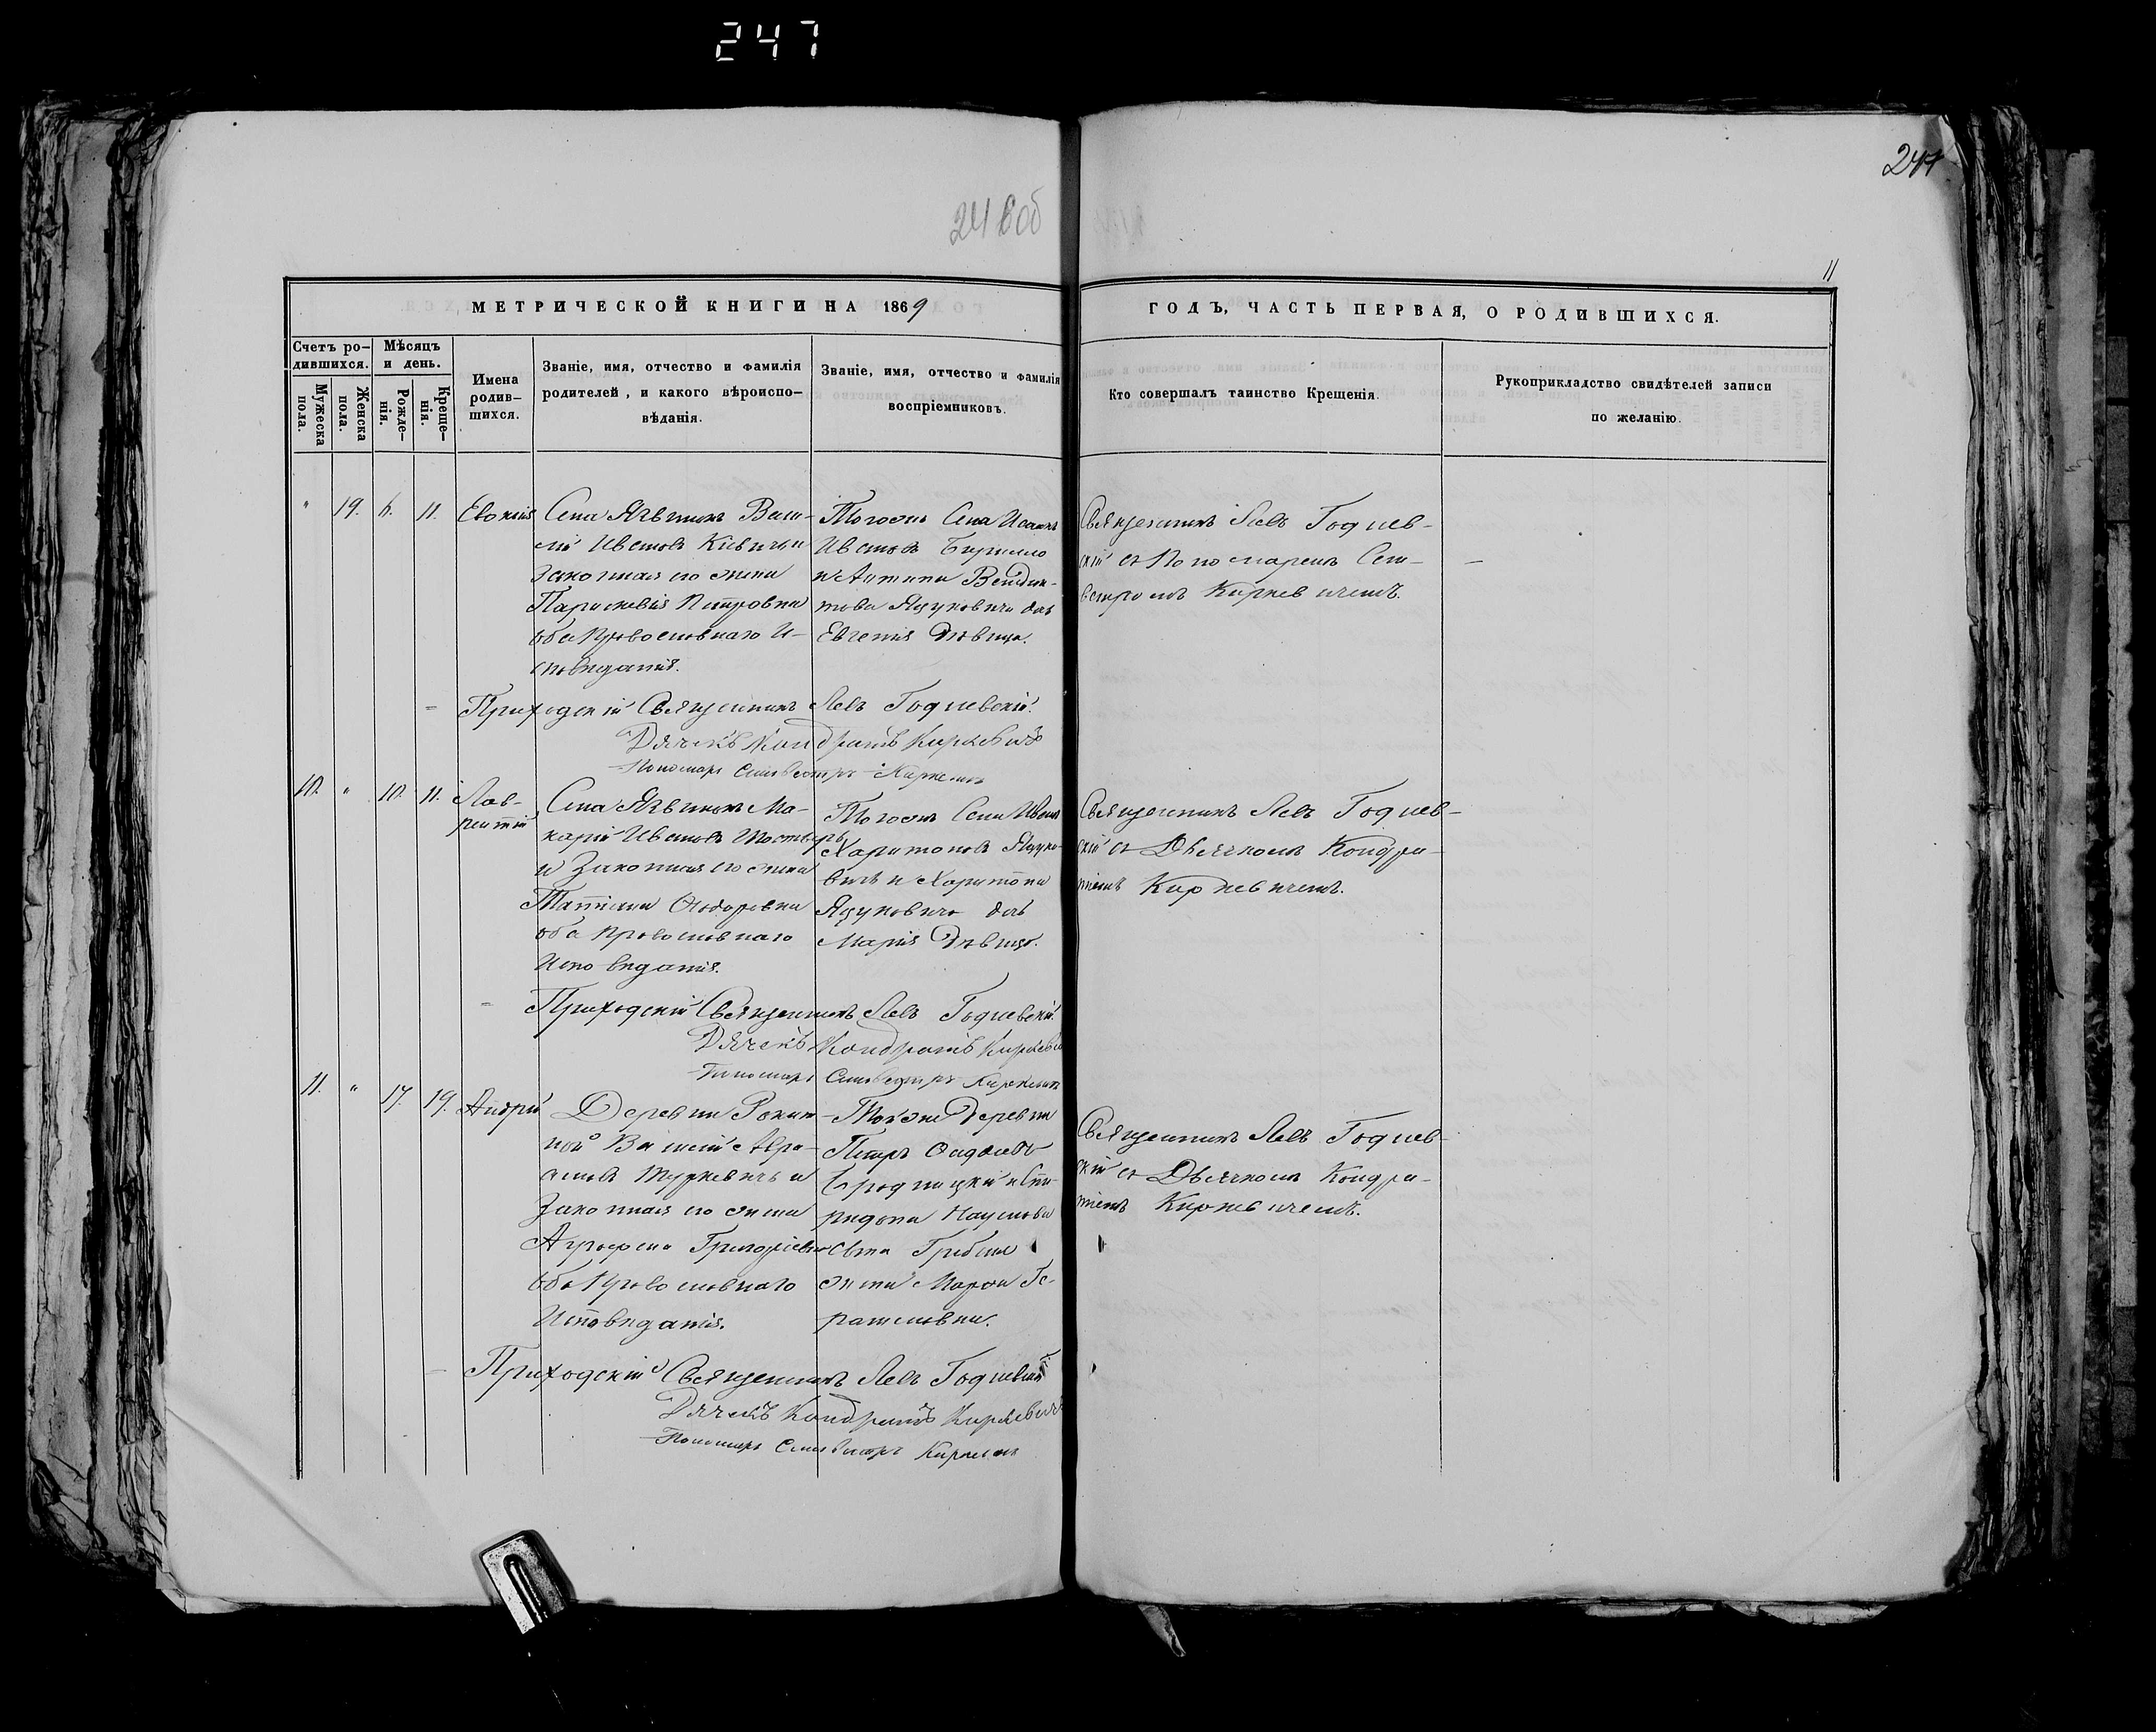 247
247
246 об
11
МЕТРИЧЕСКОЙ КНИГИ НА 1869
ГОДЪ, ЧАСТЬ ПЕРВАЯ, О РОДИВШИХСЯ.
Счетъ ро-
дившихся.
Мужеска
пола.
Женска
пола.
Мѣсяцъ
и день.
Рожде-
нія.
Креще-
нія.
Имена
родив-
шихся.
Званіе, имя, отчество и фамилія
родителей, и какого вѣроиспо-
вѣданія.
Званіе, имя, отчество и фамилія
воспріемниковъ.
Кто совершалъ таинство Крещенія.
Рукоприкладство свидѣтелей записи
по желанію.
" 19. 6. 11.
Села Васи-
лій Ивановъ
законная его жена
Параскевія Петровна
оба Православнаго И-
сповѣданія.
Тогожъ Села
Ивановъ
и Антона
Яцуковича дочь
Евгенія Дѣвица.
Священникъ Левъ Годлев-
скій съ Пономаремъ Сель-
вестромъ Киркевичемъ.
Приходскій Священникъ Левъ Годлевскій.
Дячекъ Кондратъ Киркевичъ
Пономарь Сельвестръ Киркевичъ
10. " 10. 11.
Лав-
рентій
Села Ма-
карій Ивановъ
и Законная его жена
Татіана Ѳеодоровна
оба Православнаго
Исповѣданія.
Тогожъ Села Иванъ
Харитоновъ Яцуко-
вичъ и Харитона
Яцуковича дочь
Марія Дѣвица.
Священникъ Левъ Годлев-
скій съ Дьячкомъ Кондра-
тіемъ Киркевичемъ.
Приходскій Священникъ Левъ Годлевскій.
Дячекъ Кондратъ Киркевичъ
Пономарь Сельвестръ Киркевичъ
11. " 17. 19.
Андрей
Деревни Рокит-
ной Василій Авра-
амовъ Туркевичъ и
Законная его жена
Агрофена Григоріевна
оба Православнаго
Исповѣданія.
Тойже Деревни
Петръ
Бродницкій и Спи-
ридона Наумова
сына
жена Марѳа Ге-
расимовна.
Священникъ Левъ Годлев-
скій съ Дьячкомъ Кондра-
тіемъ Киркевичемъ.
Приходскій Священникъ Левъ Годлевскій
Дячекъ Кондратъ Киркевичъ
Пономарь Сельвестръ Киркевичъ